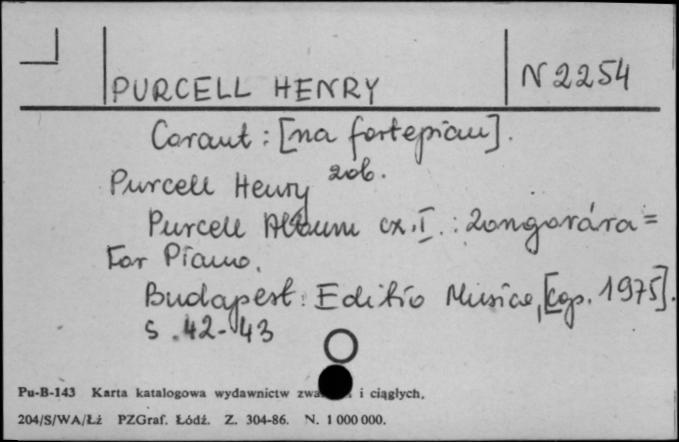 PURCELL HENRY N 2254
Corant : [na fortepian].
Purcell Henry zob.
Purcell Album cz. I. : Zongorára =
For Piano.
Budapest : Editio Musica, [cop. 1975].
S. 42-43
Pu-B-143 Karta katalogowa wydawnictw i ciągłych,
204/S/WA/Łż PZGraf. Łódź. Z. 304-86. N. 1 000 000.